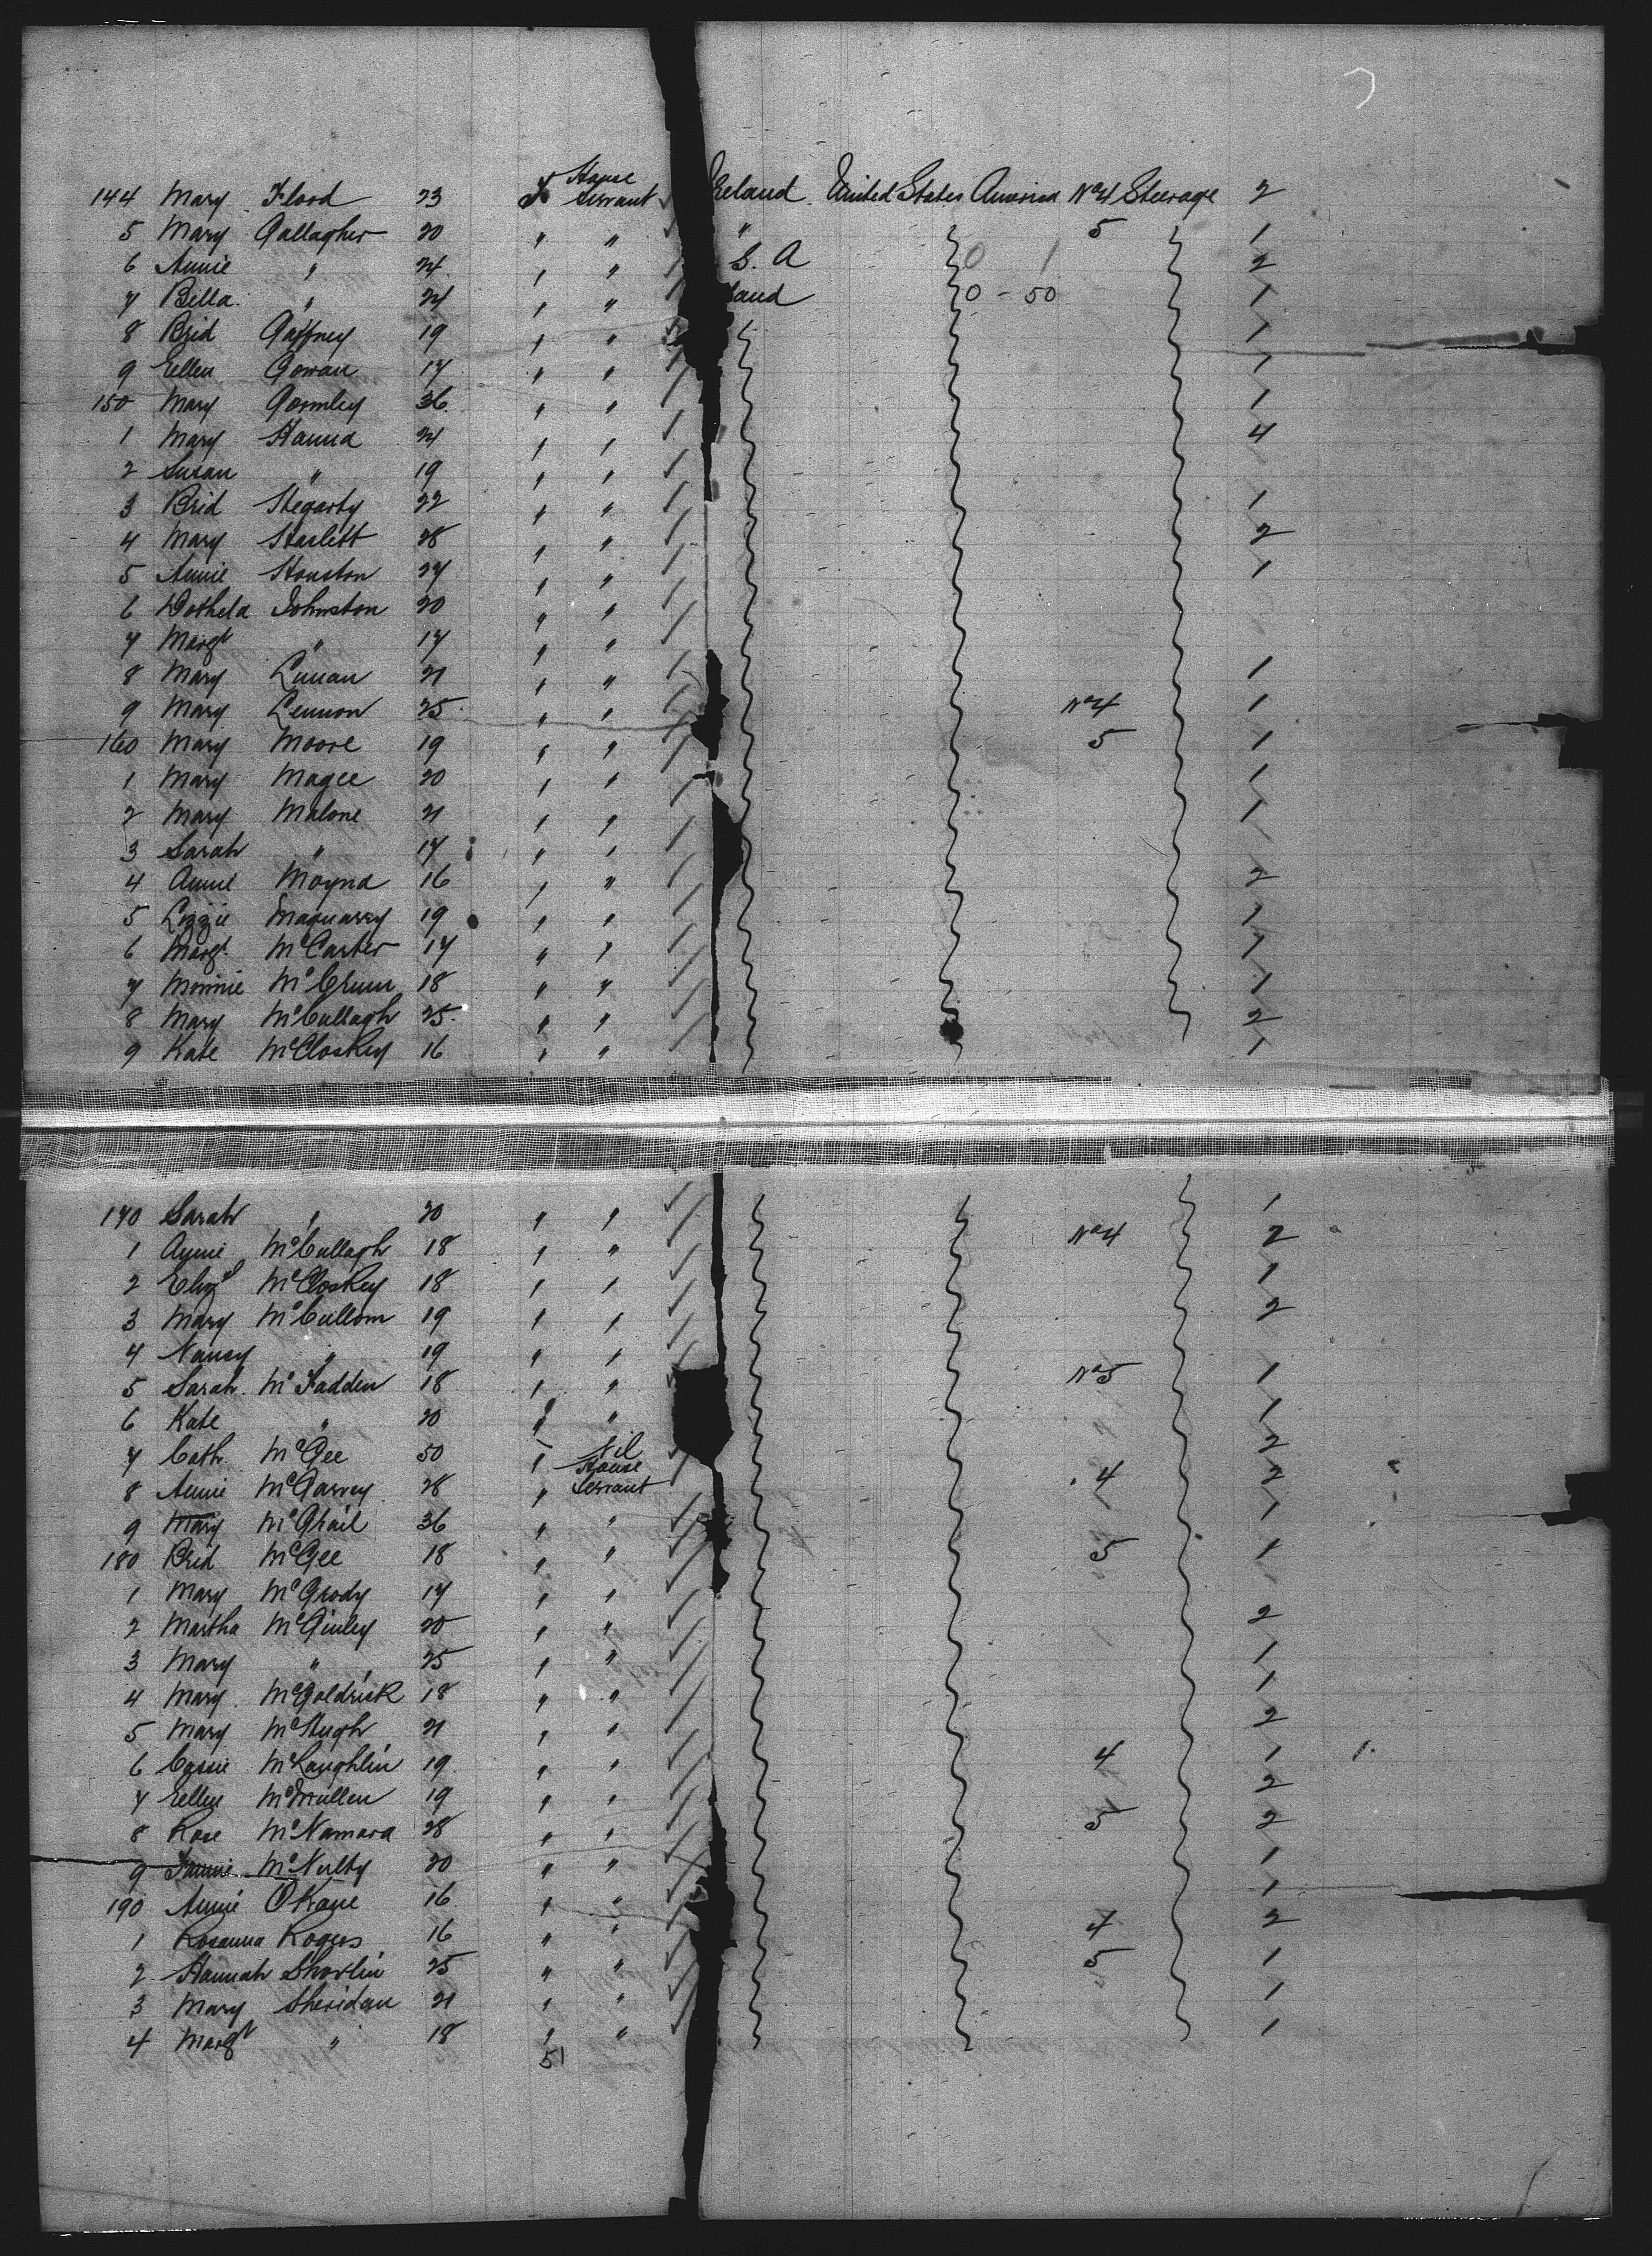 144 Mary Flood 23 f House Servant Ireland United States America No 4 Steerage 2
5 Mary Gallagher 20 " " " 5 1
6 Annie " 24 " " S. A 0 1 2
7 Bella " 24 " " land 0 - 50 1
8 Brid Gaffney 19 " " 1
9 Ellen Gowan 17 " " 1
150 Mary Gormley 36 " " 1
1 Mary Hanna 24 " " 4
2 Susan " 19 " "
3 Brid Hegarty 22 " " 1
4 Mary Haslett 28 " " 2
5 Annie Houston 27 " " 1
6 Johnston 20 " "
7 Margt " 17 " "
8 Mary 21 " " 1
9 Mary Lennon 25 " " No 4 1
160 Mary Moore 19 " " 5 1
1 Mary Magee 20 " " 1
2 Mary Malone 21 " " 1
3 Sarah " 17 " "
4 Annie Moyna 16 " " 2
5 Lizzie Maquarry 19 " " 1
6 Margt McCarter 17 " " 1
7 Minnie 18 " " 1
8 Mary McCullagh 25 " " 2
9 Kate McCloskey 16 " " 1
170 Sarah " 20 " " 1
1 Annie McCullagh 18 " " No 4 2
2 Elizth McCloskey 18 " " 1
3 Mary McCullom 19 " " 2
4 Nancy " 19 " "
5 Sarah McFadden 18 " " No 5 1
6 Kate " 20 " " 1
7 Cath McGee 50 " Nil 2
8 Annie McGarvey 28 " House Servant 4 2
9 Mary McGhail 36 " " 1
180 Brid McGee 18 " " 5 1
1 Mary McGrody 17 " "
2 Martha McGinley 20 " " 2
3 Mary " 25 " " 1
4 Mary McGoldrick 18 " " 1
5 Mary McHugh 21 " " 2
6 Cassie McLaughlin 19 " " 4 1 1
7 Ellen McMullen 19 " " 2
8 Rose McNamara 28 " " 5 2
9 Fannie McNulty 20 " " 1
190 Annie O'Kane 16 " " 1
1 Rosanna Rogers 16 " " 4 2
2 Hannah Sharlin 25 " " 5 1
3 Mary Sheridan 21 " " 1
4 Margt " 18 " " 1
51